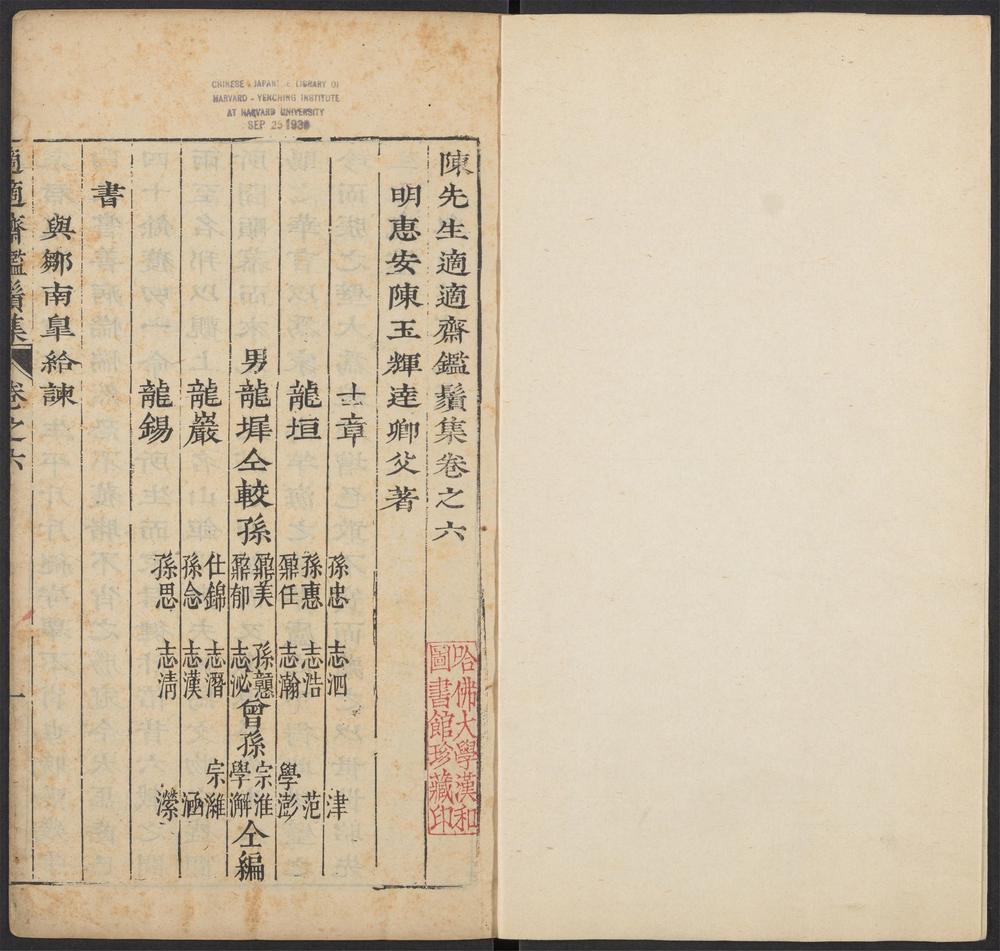 CHINESE - JAPANESE LIBRARY OF
HARVARD - YENCHING INSTITUTE
AT HARVARD UNIVERSITY
SEP 25 1930
陳先生適適齋鑑鬚集卷之六
明惠安陳玉輝逹卿父著
士章
龍垣
男龍墀仝較孫
龍巖
龍錫
孫忠
孫惠
鼏任
鼏美
鼏郁
仕錦
孫念
孫思
志泗
志浩
志瀚
孫戇
志泌
志潛
志漢
志淸
曾孫
津
范
學澎
宗淮
學澥
宗濰
涵
濴
仝編
書
與鄒南臯給諫
適適齋鑑鬚集
卷之六
一
哈佛大學漢和
圖書館珍藏印